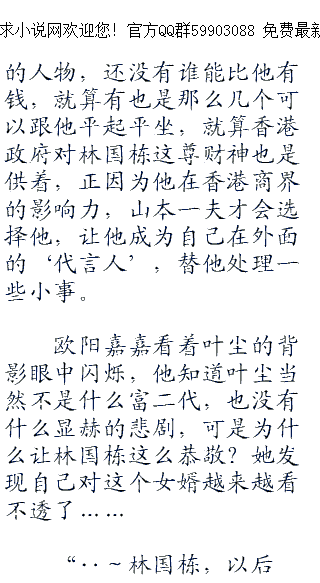 求小说网欢迎您! 官方QQ群59903088 免费最新
的人物，还没有谁能比他有
钱，就算有也是那么几个可
以跟他平起平坐，就算香港
政府对林国栋这尊财神也是
供着，正因为他在香港商界
的影响力，山本一夫才会选
择他，让他成为自己在外面
的‘代言人’，替他处理一
些小事。
欧阳嘉嘉看着叶尘的背
影眼中闪烁，他知道叶尘当
然不是什么富二代，也没有
什么显赫的悲剧，可是为什
么让林国栋这么恭敬？她发
现自己对这个女婿越来越看
不透了……
“··～林国栋，以后